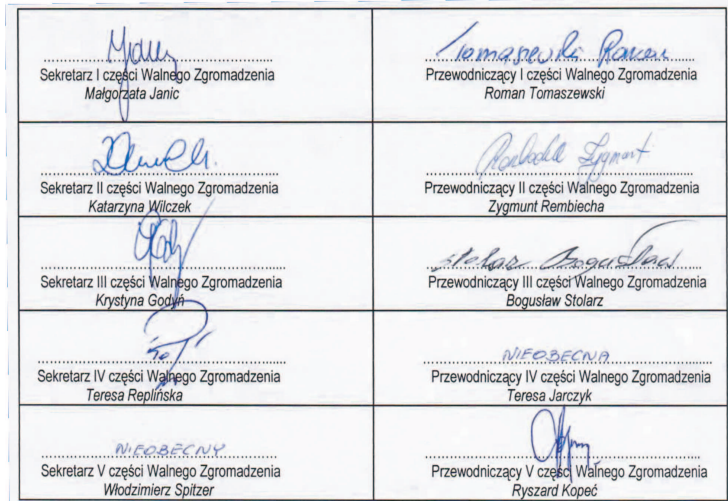 Sekretarz I części Walnego Zgromadzenia
Małgorzata Janic
Tomaszewski Roman
Przewodniczący I części Walnego Zgromadzenia
Roman Tomaszewski
Sekretarz II części Walnego Zgromadzenia
Katarzyna Wilczek
Zygmunt
Przewodniczący II części Walnego Zgromadzenia
Zygmunt Rembiecha
Sekretarz III części Walnego Zgromadzenia
Krystyna Godyń
Stolarz Bogusław
Przewodniczący III części Walnego Zgromadzenia
Bogusław Stolarz
Sekretarz IV części Walnego Zgromadzenia
Teresa Replińska
NIEOBECNA
Przewodniczący IV części Walnego Zgromadzenia
Teresa Jarczyk
NIEOBECNY
Sekretarz V części Walnego Zgromadzenia
Włodzimierz Spitzer
Przewodniczący V części Walnego Zgromadzenia
Ryszard Kopeć